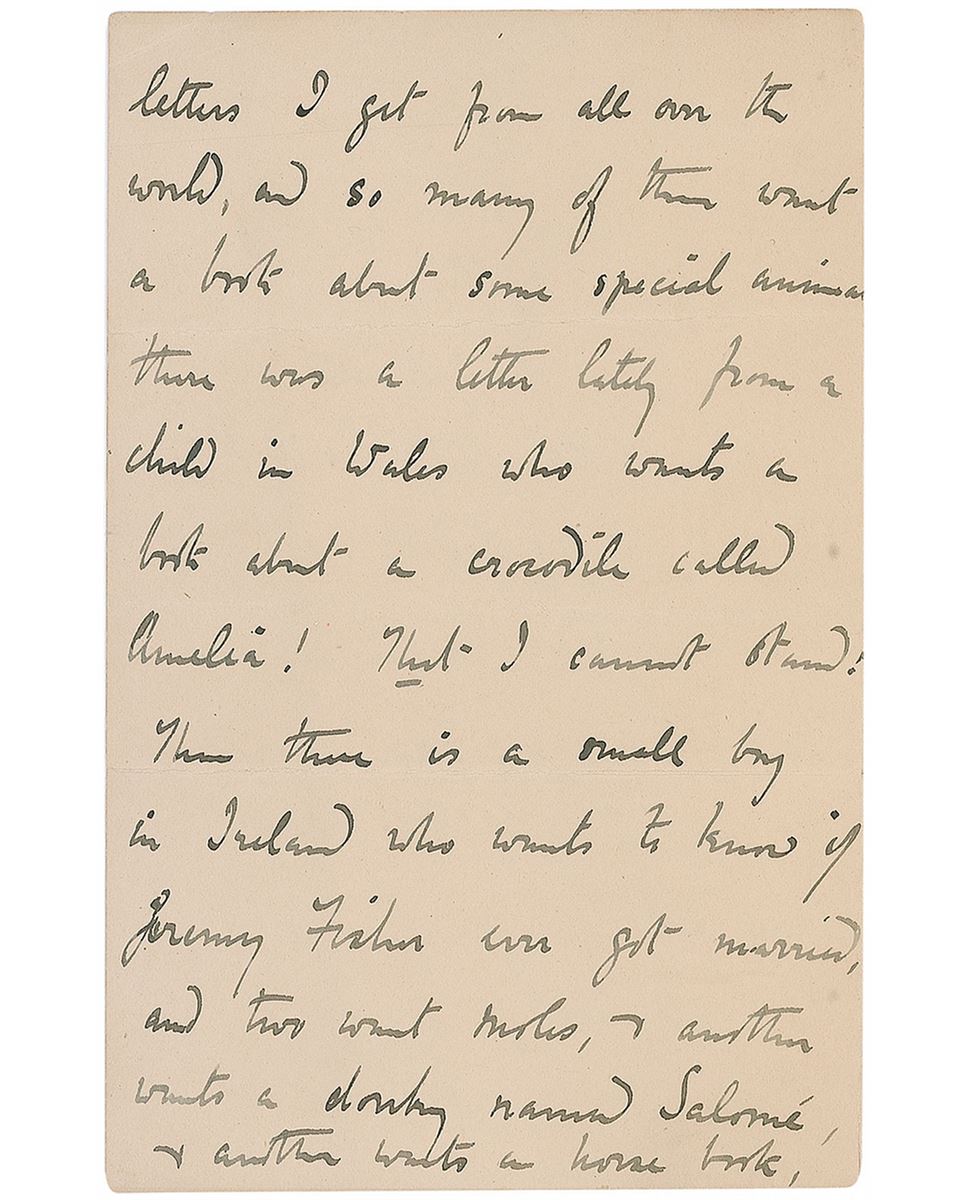 letters I get from all over the
world, and so many of them want
a book about some special animal
there was a letter lately from a
child in Wales who wants a
book about a crocodile called
Amelia! That I cannot stand!
Then there is a small boy
in Ireland who wants to know if
Jeremy Fisher ever got married,
and two want moles, & another
wants a donkey named Salomé,
& another wants a horse book,